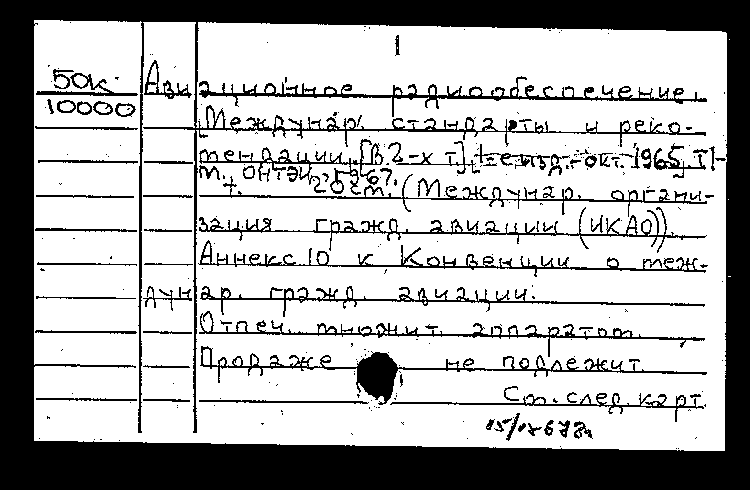 1
50к Авиационное радиообеспечение.
10000 [Междунар. стандарты и реко-
мендации. [В 2-х т.], 1-е изд.-окт. 1965. Т. 1-
М., ОНТЭИ, 1967.
т. 20 см. (Междунар. органи-
зация гражд. авиации (ИКАО)).
Аннекс 10 к Конвенции о меж-
дунар. гражд. авиации.
Отпеч. множит. аппаратом.
Продаже не подлежит.
См. след. карт.